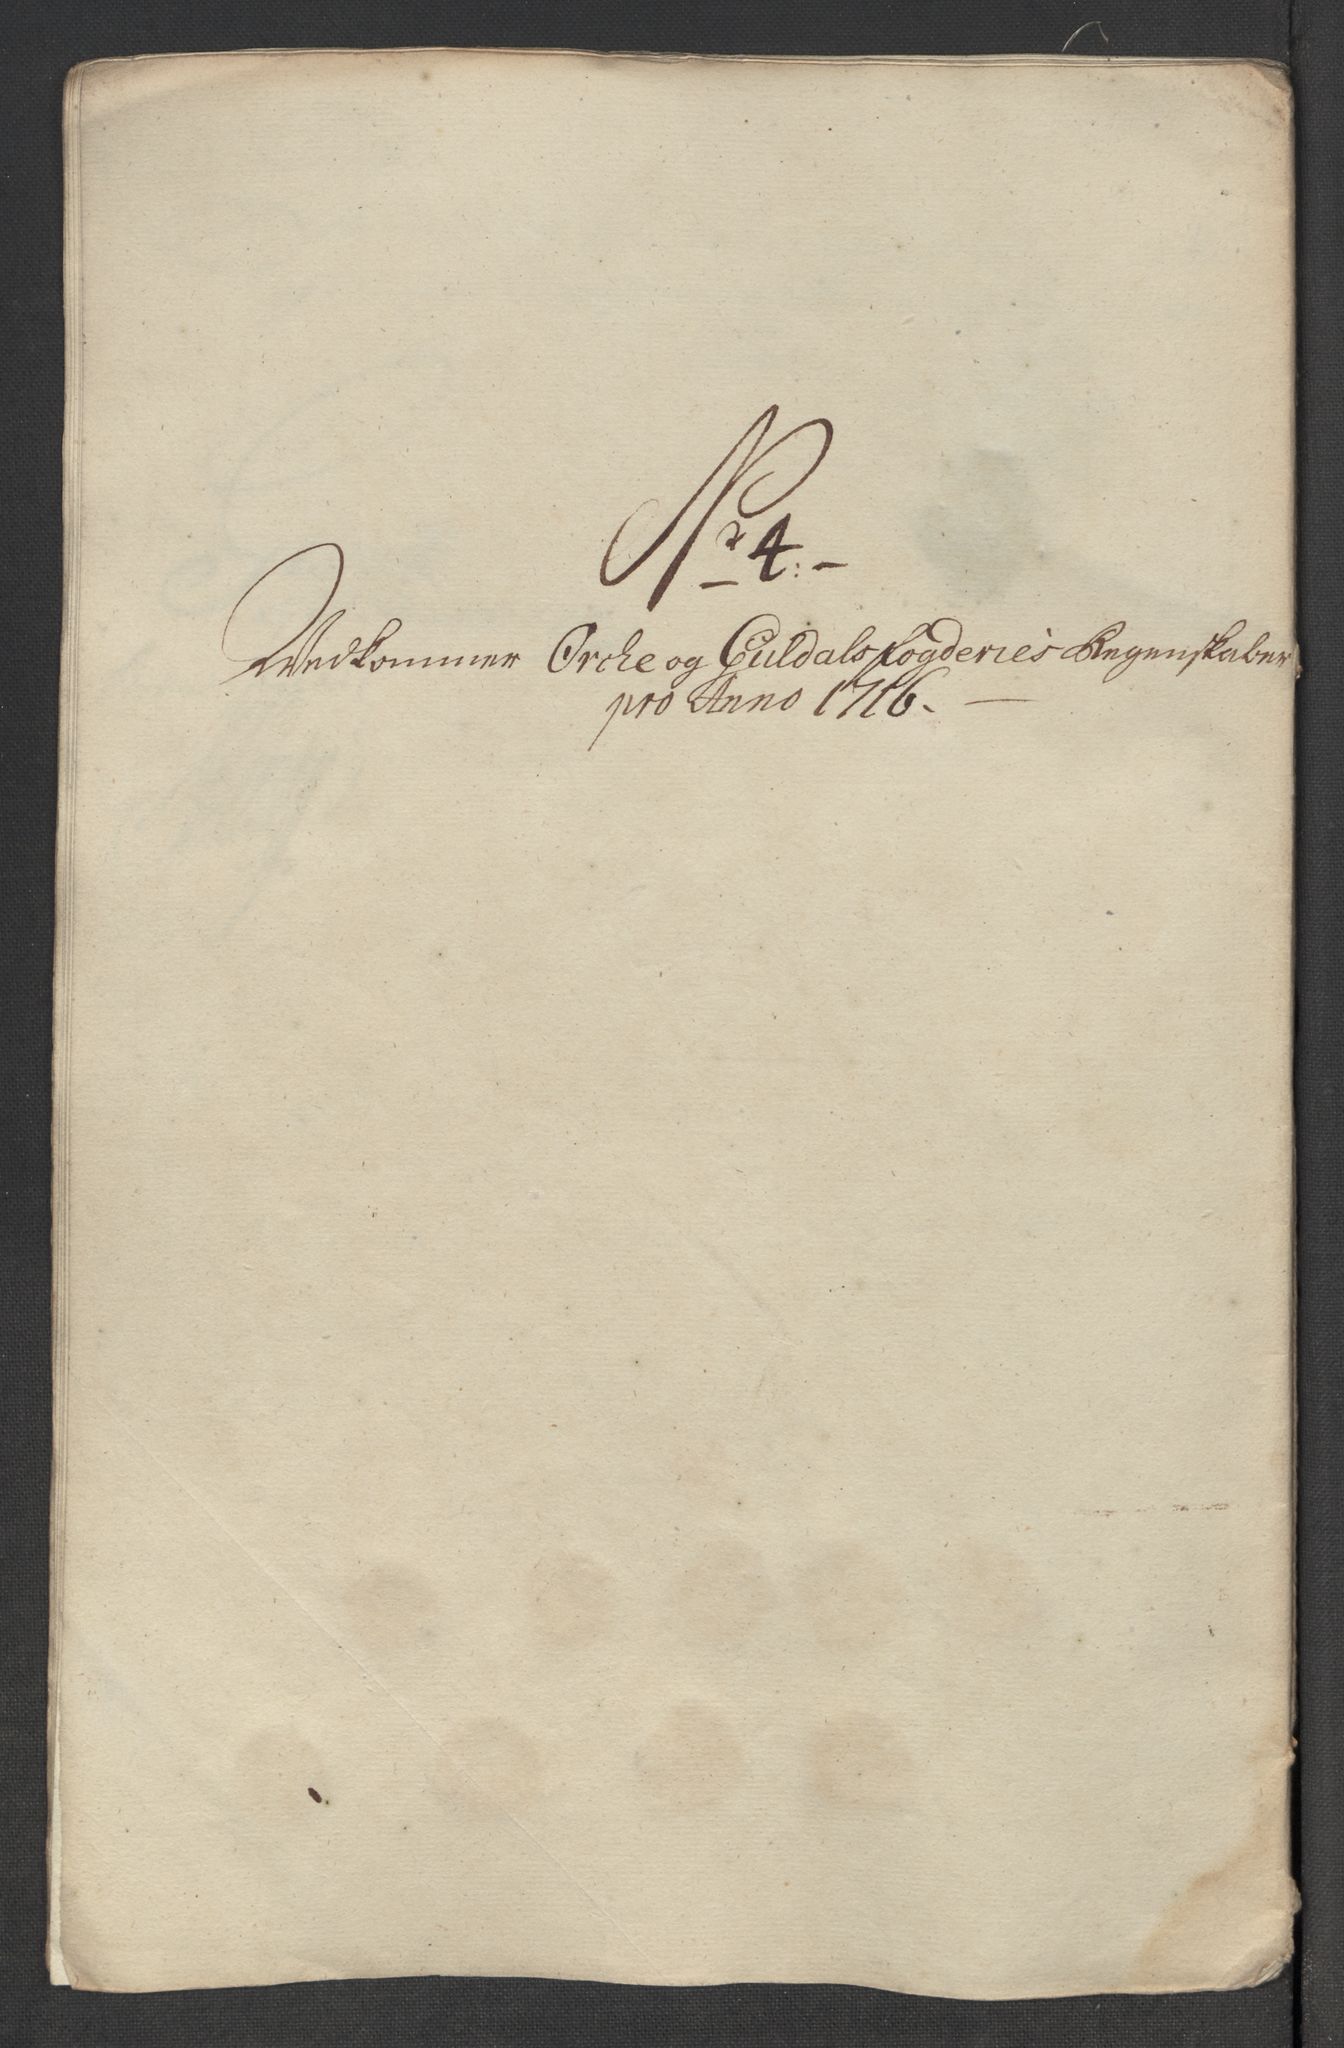 Nr 4:-
Vedkommer Orche og Guldals fogderies Regenskaber
pro Anno 1716. —